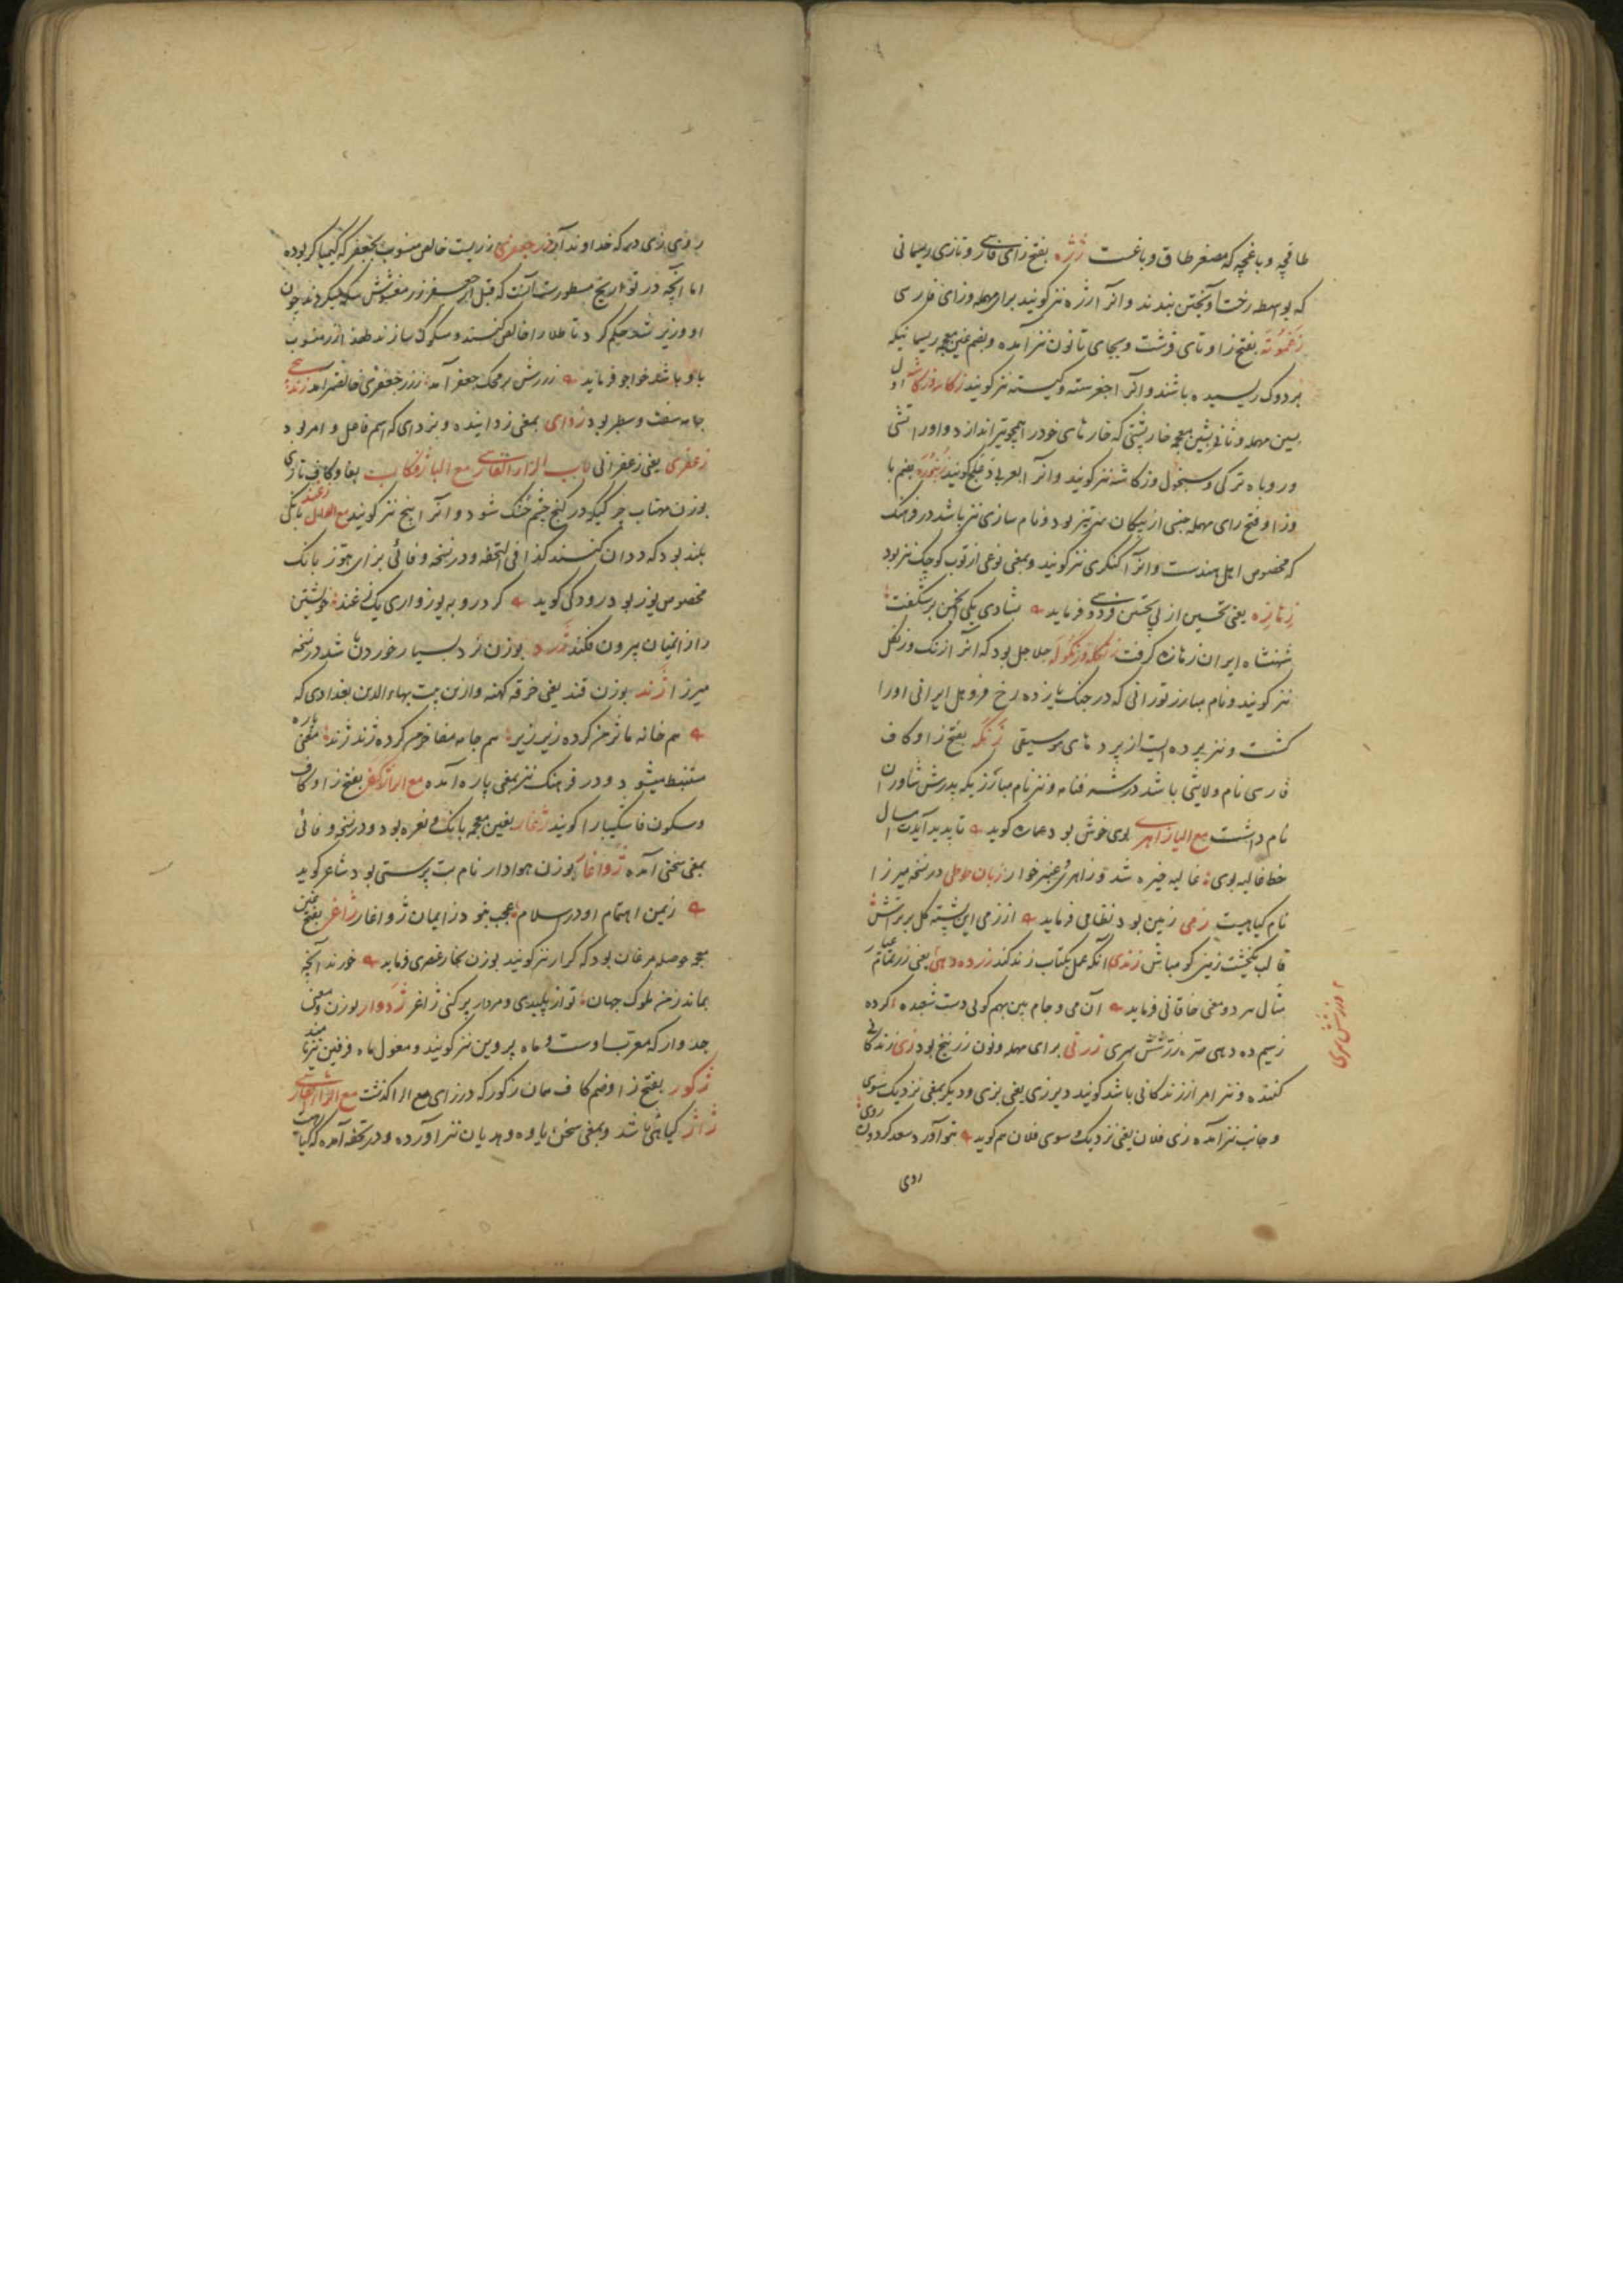 طاقچه و باغچه که مصغر طاق و باغست ژژه بفتح زای فارسی و تازی ریسمانی
که بواسطه رخت آویختن بندند و انرا ارژه نیز کویند برای مهمله و زای فارسی
زغموته بفتح زا و تای قرشت و بجای تا نون نیز آمده و بضم غین معجمه ریسمانیکه
بر دوک ریسیده باشند و انرا نیز کویند زکاسه و زکاشه اول
بسین مهمله و ثانی بشین معجمه خارپشتی که خارهای خود را همچو تیر اندازد و اورا تشی
و روباه ترکی و سیخول و زکاشه نیز کویند و انرا بعربی کویند زنبوره بضم با
و زا و فتح رای مهمله جنسی از پیکان سر تیز بود و نام سازی نیز باشد در فرهنک
که مخصوص اهل هندست و انرا کنکری نیز کویند و بمعنی نوعی از توپ کوچک نیز بود
زنازه یعنی تحسین از پی تحسین فردوسی فرماید بشادی یکی انجمن برشکفت
شهنشاه ایران زنازه کرفت زنکله و زنکوله جلاجل بود که انرا زنک و زنکل
نیز کویند و نام مبارز تورانی که در جنک یازده رخ فروهل ایرانی اورا
کشت و نیز پرده ایست از پردهای موسیقی زنکه بفتح زا و کاف
فارسی نام ولایتی باشد در شهنامه و نیز نام مبارزیکه پدرش شاوران
نام داشت مع الیا زاهری بوی خوش بود عماره کوید تا پدید آیدت امسال
خط غالیه بوی غالیه خیره شد و زاهری عنبر خوار زبان حلی در نسخه میرزا
نام کیاهیست زمی زمین بود نظامی فرماید از زمی این پشته کل برتراش
قالب یکخشت زمین کو مباش زندی انکه عمل بکتاب زند کند زر ده دهی یعنی زر تمام عیار
مثال هر دو معنی خاقانی فرماید آن می و جام بین بهم کوئی دست شعبده کرده
ز سیم ده دهی صره زر شش سری زرنی برای مهمله و نون زرنیخ بود زی زندکانی
کننده و نیز امر از زندکانی باشد کویند دیر زی یعنی بزی و دیکر بمعنی نزدیک و سوی
و جانب نیز آمده زی فلان یعنی نزدیک و سوی فلان هم کوید بتو آورد سعد کردون روی
روی
زر شش سری
روی زی درم که خداوند آن زر جعفری زریست خالص منسوب بجعفر که کیمیاکر بوده
اما آنچه در تواریخ مسطورست آنست که قبل از جعفر زر مغشوش سکه میکردند چون
او وزیر شد حکم کرد تا طلا را خالص کنند و مسکوک سازند لهذا زر منسوب
باو باشد خواجو فرماید زر رش بر محک جعفر آمد زر جعفری خالصتر آمد زندیجی
جامه سفت و سطبر بود زدای بمعنی زداینده و بزدای که اسم فاعل و امر بود
زعفری یعنی زعفرانی باب الزاء الفارسی مع البا ژفکاب بفا و کاف تازی
بوزن مهتاب چرکیکه در کنج چشم خشک شود و انرا پیخ نیز کویند مع الدال ژغند بانکی
بلند بود که ددان کنند کذا فی التحفه و در نسخه وفائی بزای هوز بانک
مخصوص یوز بود رودکی کوید کرد روبه یوزواری یک ژغند خویشتن
را از انمیان بیرون فکند ژرد بوزن زرد بسیار خوردن باشد در نسخه
میرزا ژند بوزن قند یعنی خرقه کهنه و ازین بیت بهاءالدین بغدادی که
هم خانه ما ژمن کرده زیر زبر هم جامه مفاخرم کرده ژند ژند معنی پاره
مستنبط میشود و در فرهنک نیز بمعنی پاره آمده مع الرا ژکفر بفتح زا و کاف
و سکون فا شکیبا را کویند ژغار بغین معجمه بانک و نعره بود و در نسخه وفائی
بمعنی سختی آمده ژواغار بوزن هوادار نام بت پرستی بود شاعر کوید
زیمن اهتمام او در اسلام عجب نبود ز ایمان ژواغار ژاغر بفتح غین
معجمه حوصله مرغان بود که کرار نیز کویند بوزن بخار عنصری فرماید خورند آنچه
بماند ز من ملوک جهان تو از پلیدی و مردار پر کنی ژاغر ژدوار بوزن و معنی
جدوار که معرب اوست و ماه پروین نیز کویند و مغول ماه فرفین نیز نامند
ژکور بفتح زا و ضم کاف همان زکور که در زای مع الرا کذشت مع الزاء الفارسی
ژاژ کیاهی باشد و بمعنی سخن یاوه و هذیان نیز آورده و در تحفه آمده که کیاهیست